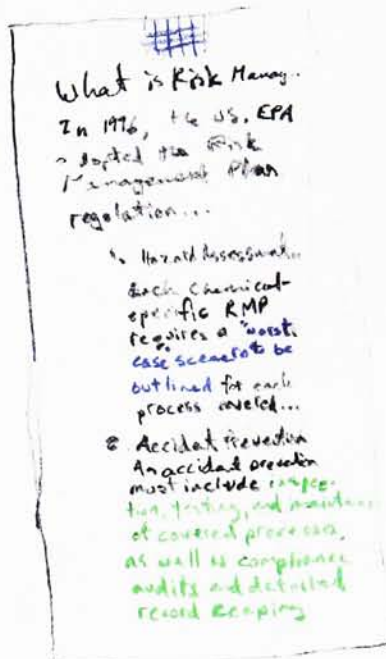 What is Risk Manag..
In 1996, the US. EPA
adopted the Risk
Management Plan
regolation...
1. Hazard Assessment..
Each Chemical-
specific RMP
requires a "worst.
case scenero" to be
outlined for each
process covered...
2. Accident Prevention
An accident prevention
must include inspec-
tion, testing, and
of covered processes,
as well as compliance
audits and detailed
record keeping